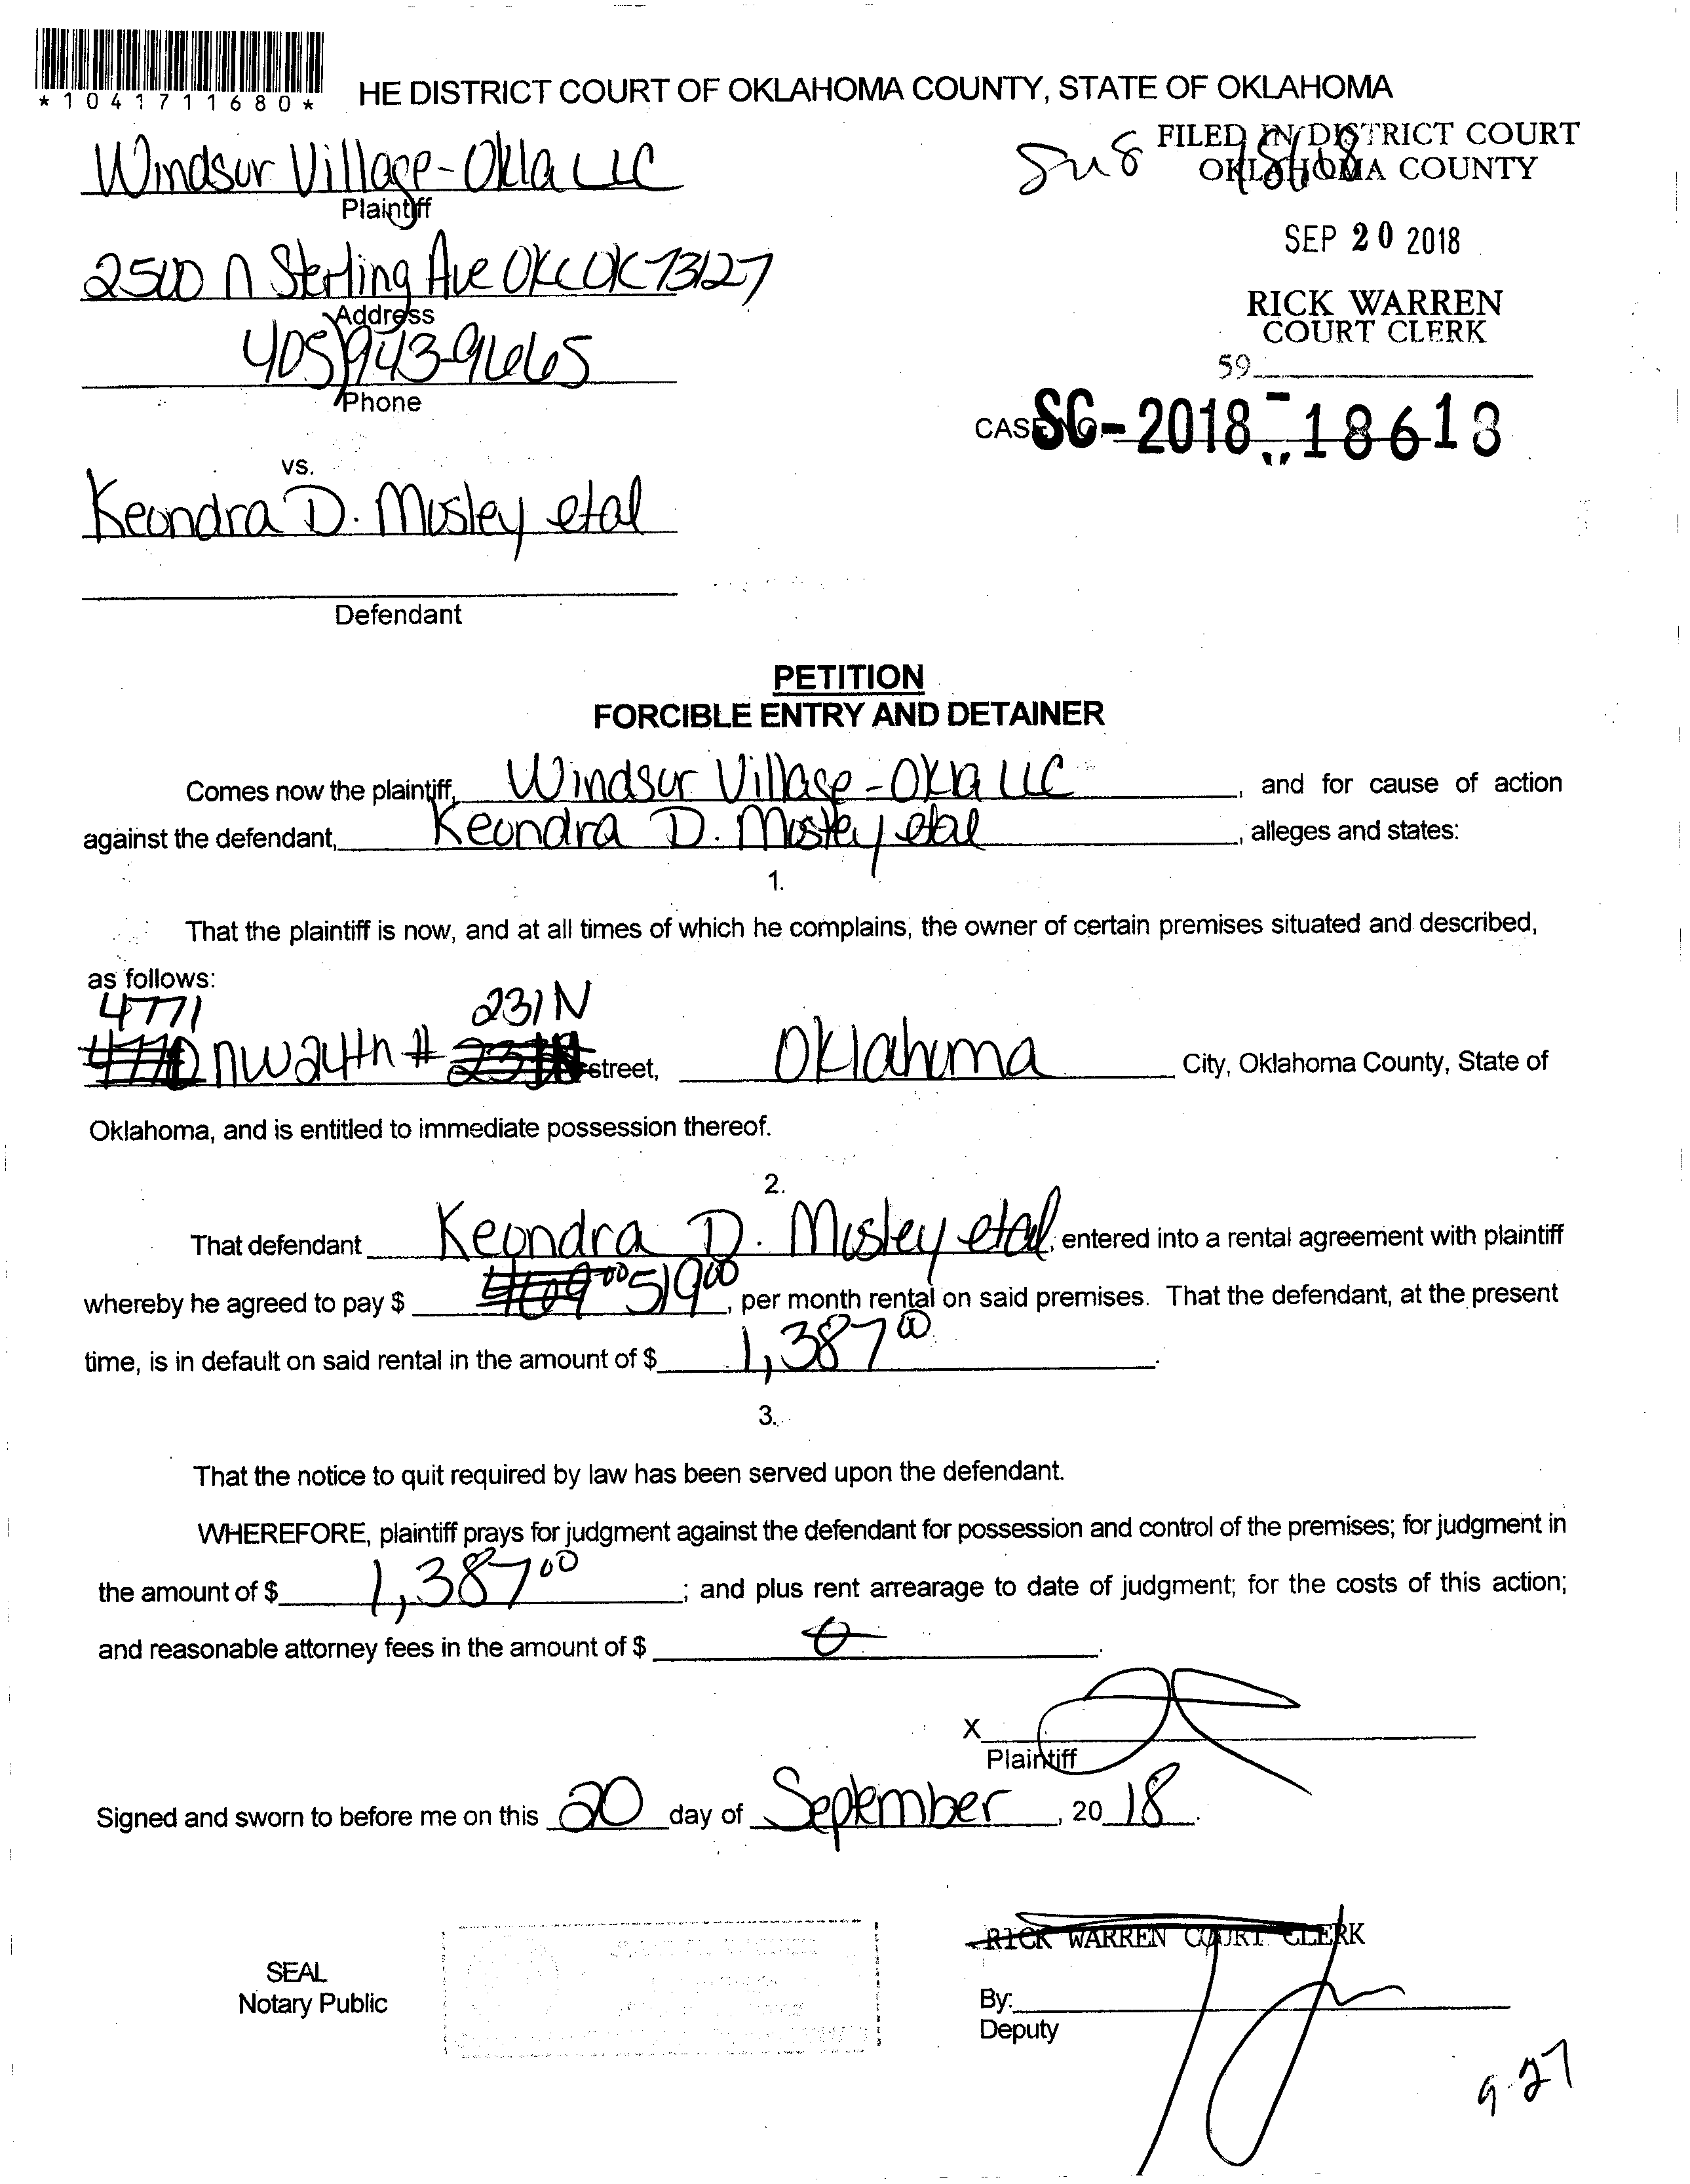 *1041711680*
HE DISTRICT COURT OF OKLAHOMA COUNTY, STATE OF OKLAHOMA
FILED IN DISTRICT COURT
OKLAHOMA COUNTY
Windsor Village-Okla LLC
Plaintiff
SEP 20 2018
2500 N Sterling Ave OKC OK 73127
Address
RICK WARREN
COURT CLERK
405)943-9665
Phone
59
CASE NO. SC-2018-18618
vs.
Keondra D. Mosley etal
Defendant
PETITION
FORCIBLE ENTRY AND DETAINER
Comes now the plaintiff, Windsor Village-Okla LLC, and for cause of action
against the defendant, Keondra D. Mosley etal, alleges and states:
1.
That the plaintiff is now, and at all times of which he complains, the owner of certain premises situated and described,
as follows:
4771 231N
NW 24th # street, Oklahoma City, Oklahoma County, State of
Oklahoma, and is entitled to immediate possession thereof.
2.
That defendant Keondra D. Mosley etal, entered into a rental agreement with plaintiff
whereby he agreed to pay $ 519 00, per month rental on said premises. That the defendant, at the present
time, is in default on said rental in the amount of $ 1,387 00.
3.
That the notice to quit required by law has been served upon the defendant.
WHEREFORE, plaintiff prays for judgment against the defendant for possession and control of the premises; for judgment in
the amount of $ 1,387 00; and plus rent arrearage to date of judgment; for the costs of this action;
and reasonable attorney fees in the amount of $ 0.
X
Plaintiff
Signed and sworn to before me on this 20 day of September, 20 18.
RICK WARREN COURT CLERK
SEAL
Notary Public
By:
Deputy
9-27